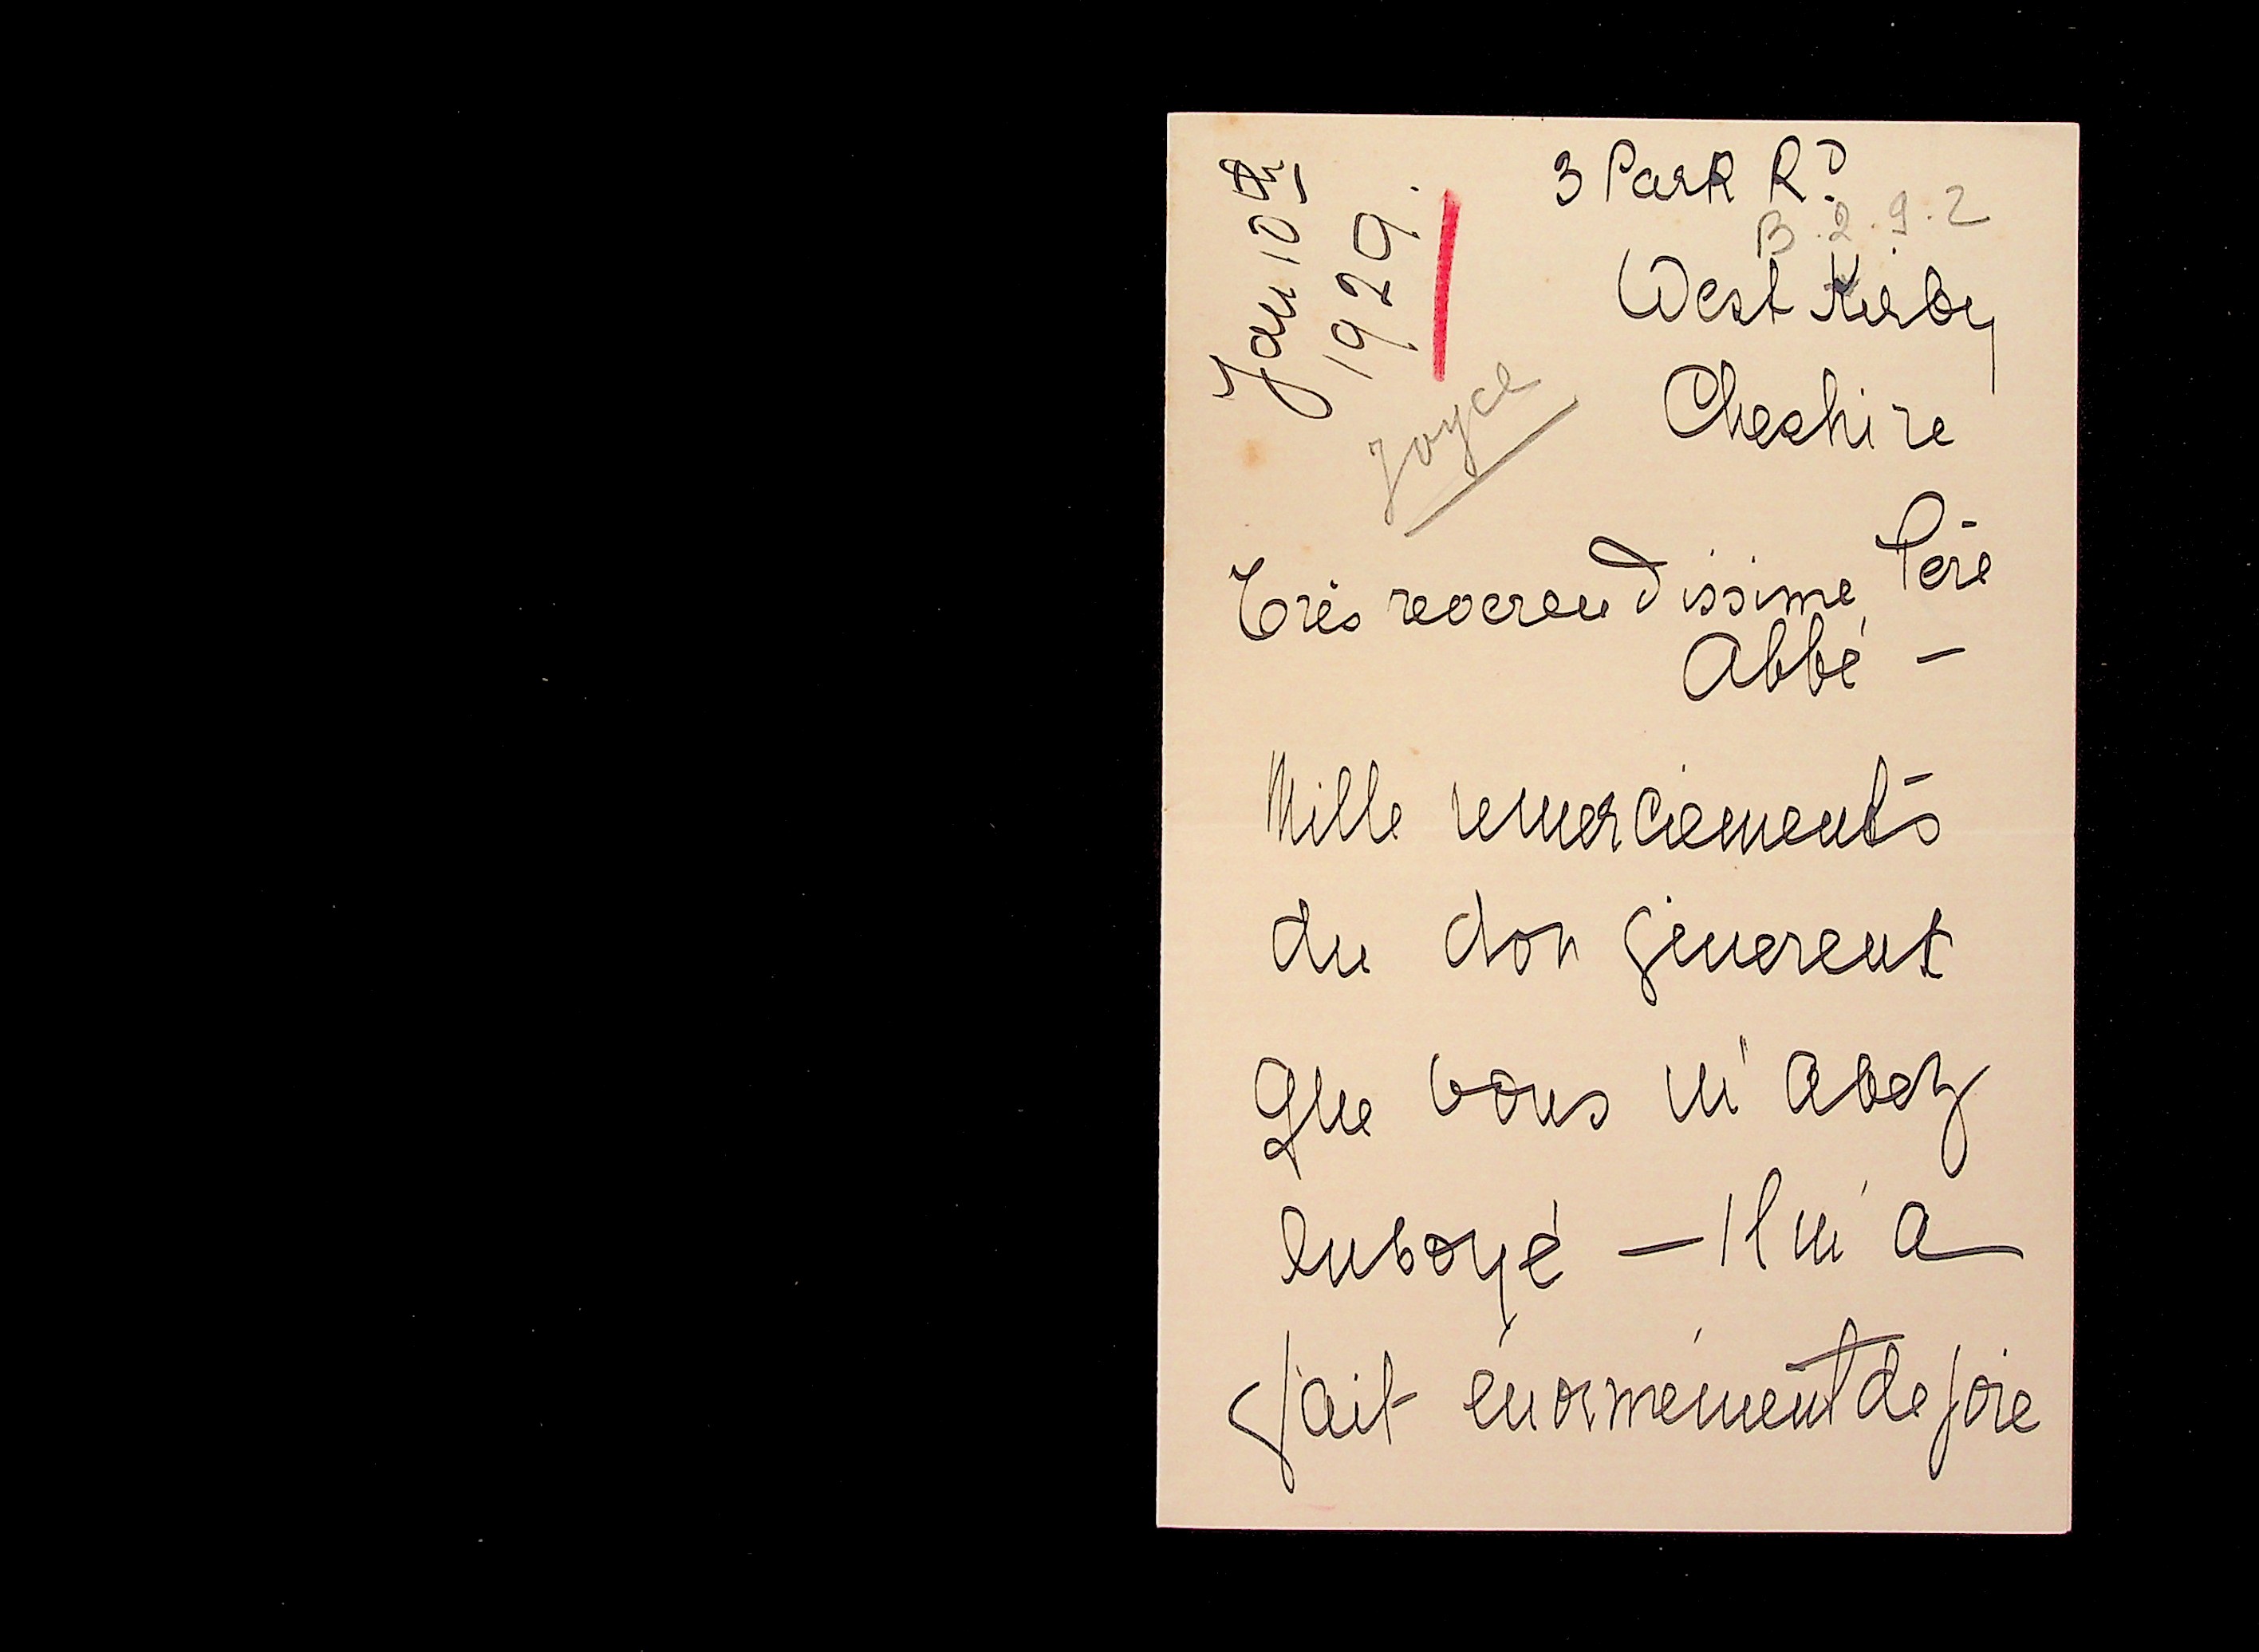 3 Park Rd.
B.2.9.2
West Kirby
Cheshire
Jan 10th
1929.
Joyce
Très reverendissime Père
Abbé –
Mille remerciements
du don génereux
que vous m'avez
envoyé – Il m'a
fait énormément de joie